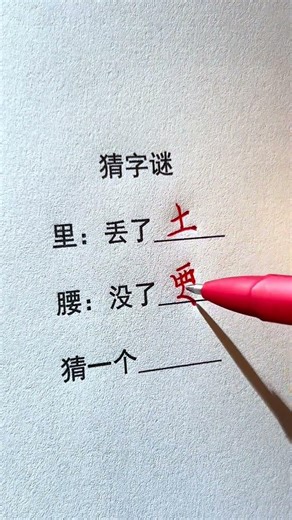 猜字谜
里：丢了土
腰：没了要
猜一个______